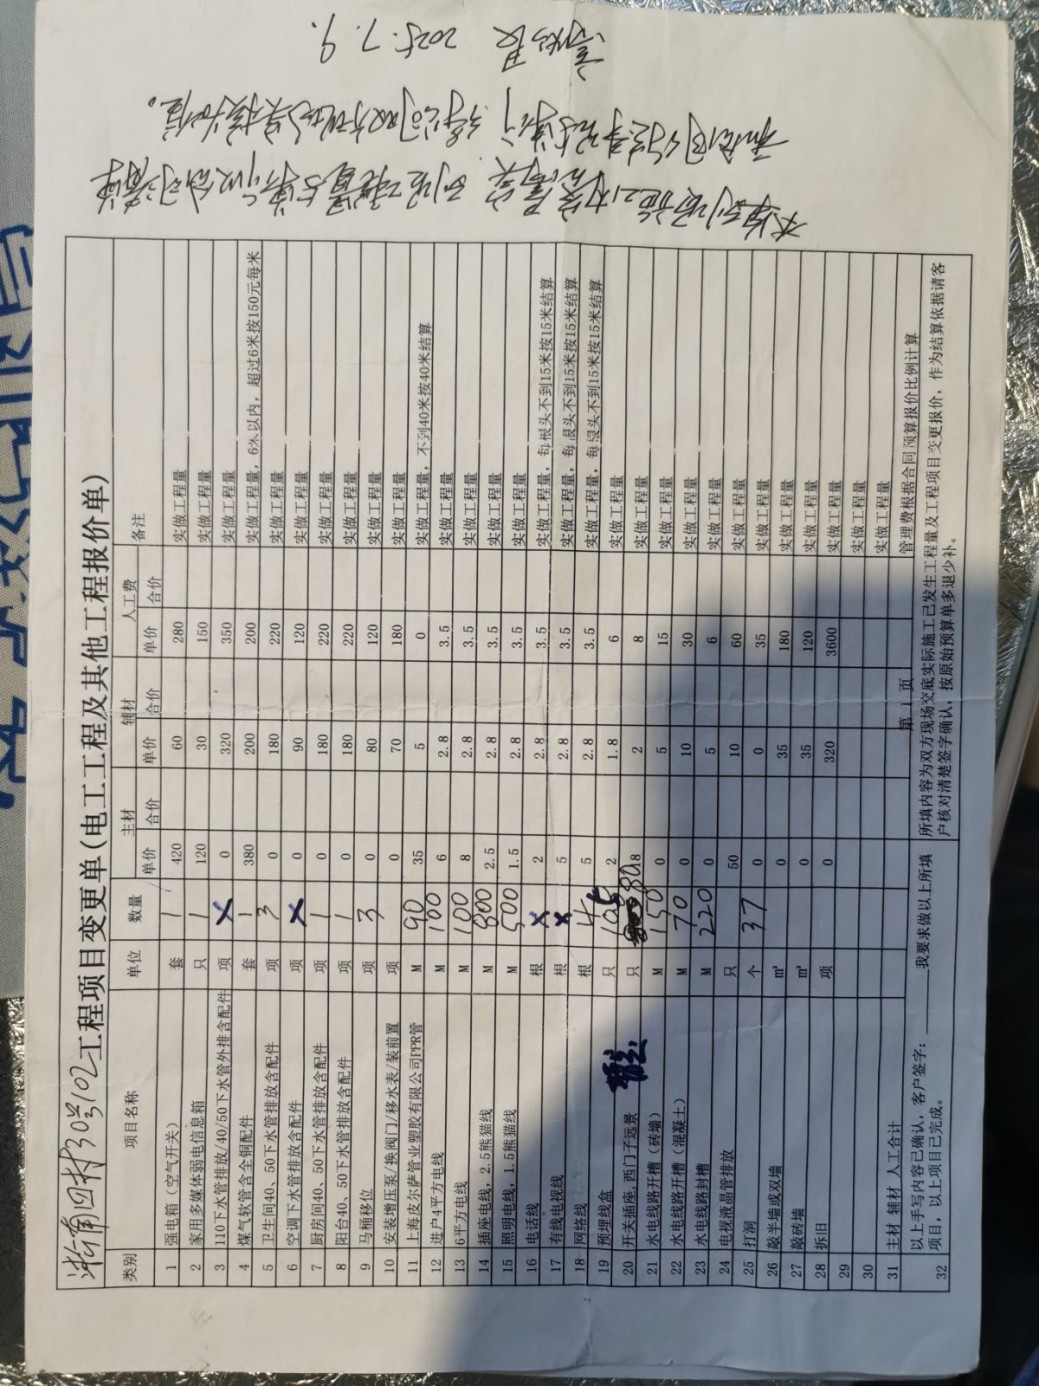 浙南四村30号102工程项目变更单(电工工程及其他工程报价单)
类别 项目名称 单位 数量 主材 辅材 人工费 备注
单价 合价 单价 合价 单价 合价
1 强电箱（空气开关） 套 1 420 60 280 实做工程量
2 家用多媒体弱电信息箱 只 1 120 30 150 实做工程量
3 110下水管排放/40/50下水管外排含配件 项 X 0 320 350 实做工程量
4 煤气软管含全铜配件 套 1 380 200 200 实做工程量，6米以内，超过6米按150元每米
5 卫生间40、50下水管排放含配件 项 3 0 180 220 实做工程量
6 空调下水管排放含配件 项 X 0 90 120 实做工程量
7 厨房间40、50下水管排放含配件 项 1 0 180 220 实做工程量
8 阳台40、50下水管排放含配件 项 1 0 180 220 实做工程量
9 马桶移位 项 3 0 80 120 实做工程量
10 安装增压泵/换阀门/移水表/装前置 项 0 70 180 实做工程量
11 上海皮尔萨管业塑胶有限公司PPR管 M 90 35 5 0 实做工程量，不到40米按40米结算
12 进户4平方电线 M 100 6 2.8 3.5 实做工程量
13 6平方电线 M 100 8 2.8 3.5 实做工程量
14 插座电线，2.5熊猫线 M 800 2.5 2.8 3.5 实做工程量
15 照明电线，1.5熊猫线 M 500 1.5 2.8 3.5 实做工程量
16 电话线 根 X 2 2.8 3.5 实做工程量，每根头不到15米按15米结算
17 有线电视线 根 X 5 2.8 3.5 实做工程量，每根头不到15米按15米结算
18 网络线 根 4 5 2.8 3.5 实做工程量，每根头不到15米按15米结算
19 预埋线盒 只 105 2 1.8 6 实做工程量
20 开关插座,西门子远景 只 80 18 2 8 实做工程量
21 水电线路开槽（砖墙） M 150 0 5 15 实做工程量
22 水电线路开槽（混凝土） M 70 0 10 30 实做工程量
23 水电线路封槽 M 220 0 5 6 实做工程量
24 电视液晶管排放 只 50 10 60 实做工程量
25 打洞 个 37 0 0 35 实做工程量
26 敲半墙或双墙 m² 0 35 180 实做工程量
27 敲砖墙 m² 0 35 120 实做工程量
28 拆旧 项 0 320 3600 实做工程量
29 实做工程量
30 实做工程量
31 主材 辅材 人工合计 第 1 页 管理费根据合同预算报价比例计算
32 以上手写内容已确认，客户签字： 我要求做以上所填 所填内容为双方现场交底实际施工已发生工程量及工程项目变更报价，作为结算依据请客
项目，以上项目已完成。 户核对清楚签字确认，按原始预算单多退少补。
2025.7.9.